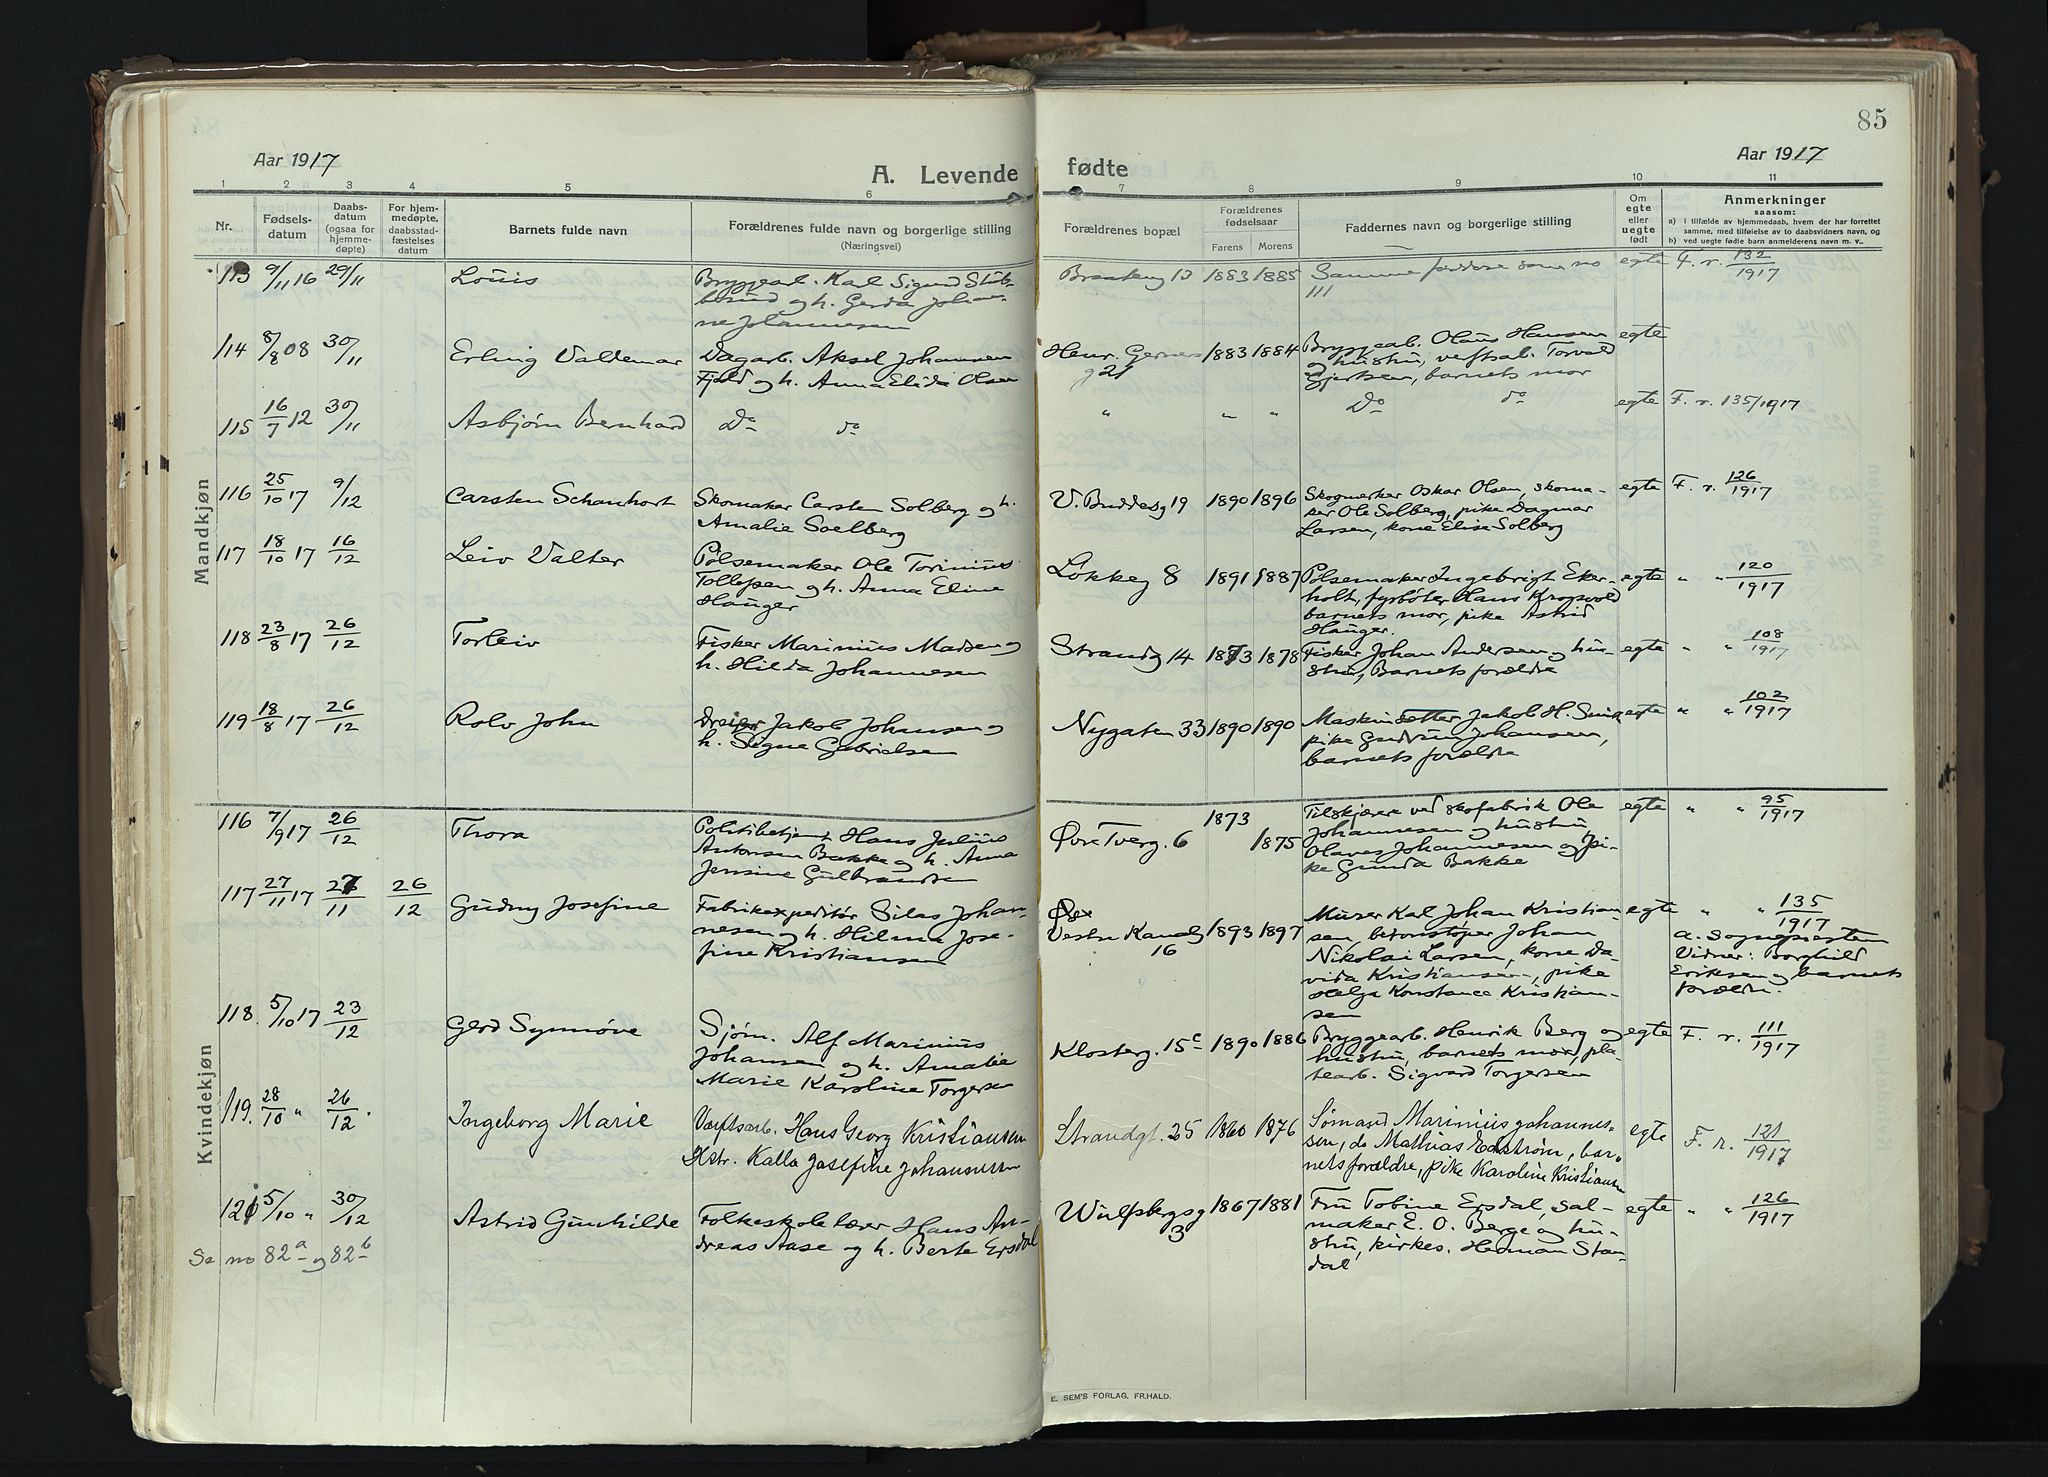 85
Aar 1917
A. Levende fødte
Aar 1917
1 2 3 4 5 6 7 8 9 10 11
Nr.
Fødsels-
datum
Daabs-
datum
(ogsaa for
hjemme-
døpte)
For hjem-
medøpte,
daabsstad-
fæstelses
datum
Barnets fulde navn
Forældrenes fulde navn og borgerlige stilling
(Næringsvei)
Forældrenes bopæl
Forældrenes
fødselsaar
Farens Morens
Faddernes navn og borgerlige stilling
Om
egte
eller
uegte
født
Anmerkninger
saasom:
a) i tilfælde av hjemmedaab, hvem der har forrettet
samme, med tilføielse av to daabsvidners navn, og
b) ved uegte fødte barn anmelderens navn m. v.
Mandkjøn
113 9/11 16 29/11 Louis
Bryggearb. Karl Sigurd
og h. Gerda Johan-
ne Johannesen
1883 1885
Samme faddere som no
111
egte F. r. 132/1917
114 8/8 08 30/11 Erling Valdemar
Dagarb. Aksel Johannsen
Fjeld og h. Anna Elida Olsen
Henr. Gerners
g 21
1883 1884
Bryggearb. Olaus Hansen
og hustru, verftsarb. Torvald
Gjertsen, barnets mor
egte
115 16/7 12 30/11 Asbjørn Bernhard
Do do
" " "
Do do
egte F. r. 135/1917
116 25/10 17 9/12 Carsten Schanhort
Skomaker Carsten Solberg og h.
Amalie Soelberg
V. Buddesg 19 1890 1896
Skogmerker Oskar Olsen, skoma-
ker Ole Solberg, pike Dagmar
Larsen, kone Elise Solberg
egte F. r. 126/1917
117 18/10 17 16/12 Leiv Valter
Pølsemaker Ole Torinius
Tollefsen og h. Anna Eline
Hauger
Løkkeg 8 1891 1887
Pølsemaker Ingebrigt Eker-
holt, fyrbøter Hans Krogsvold
barnets mor, pike Astrid
Hauger.
egte " " 120/1917
118 23/8 17 26/12 Torleiv
Fisker Marinius Madsen og
h. Hilda Johannesen
Strandg 14 1873 1878
Fisker Johan Andersen og hu-
stru, Barnets forældre
egte " " 108/1917
119 18/8 17 26/12 Rolv John
Dreier Jakob Johansen og
h. Signe Gabrielsen
Nygaten 33 1890 1890
Maskinsetter Jakob H.
pike Gudrun Johansen,
barnets forældre
egte " " 102/1917
Kvindekjøn
116 7/9 17 26/12 Thora
Politibetjent Hans Julius
Antonsen Bakke og h. Anna
Jensine Gulbrandsen
Øvre Tverg. 6 1873 1875
Tilskjærer ved skofabrik Ole
Johannesen og hustru
Olaves Johannesen og pi-
ke Gunda Bakke
egte " " 95/1917
117 27/11 17 27/11 26/12 Gudny Josefine
Fabrikexpeditør Silas Johan-
nesen og h. Hilma Jose-
fine Kristiansen
Vestre Kanalg
16
1893 1897
Murer Karl Johan Kristian-
sen, betonstøper Johan
Nikolai Larsen, kone Da-
vida Kristiansen, pike
Helga Konstance Kristian-
sen
egte " " 135/1917
a. Sognepresten
Vidner: Borghild
Eriksen og barnets
forældre.
118. 5/10 17 23/12 Gerd Synnøve
Sjøm. Alf Marinius
Johansen og h. Amalie
Marie Karoline Torgersen
Klosterg. 15c 1890 1886
Bryggearb. Henrik Berg og
hustru, barnets mor, pla-
tearb. Sigvard Torgersen
egte F. r. 111/1917
119. 28/10 " 26/12. Ingeborg Marie
Værftsarb. Hans Georg Kristiansen
Hstr. Kalla Josefine Johannesen
Strandgt. 25 1860 1876
Sømand Marinius Johannes-
sen, do Mathias Edstrøm, bar-
nets forældre, pike Karoline Kristiansen
egte F. r. 121/1917
120 5/10 " 30/12 Astrid Gunhilde
Folkeskolelærer Hans An-
dreas Aase og h. Berte Ersdal
Wulfsbergsg
3
1867 1881
Fru Tobine Ersdal, sal-
maker E. O. Berge og hu-
stru, kirkes. Herman Stan-
dal
egte " " 126/1917
Se no 82a og 82b
E. SEM'S FORLAG, FR.HALD.